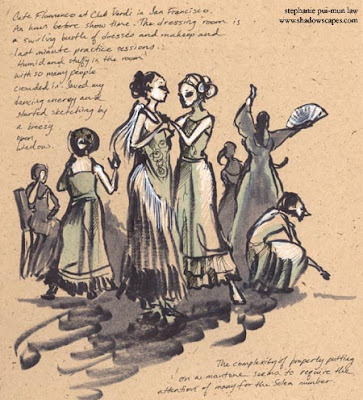 stephanie pui-mun law
www.shadowscapes.com
Cafe Flamenco at Club Verdi in San Francisco.
An hour before show time. The dressing room is
a swirling bustle of dresses and makeup and
last minute practice sessions.
Humid and stuffy in the room
with so many people
crowded in. Saved my
dancing energy and
started sketching by
a breezy
open
window.
The complexity of properly putting
on a mantone seems to require the
attentions of many for the Solea number